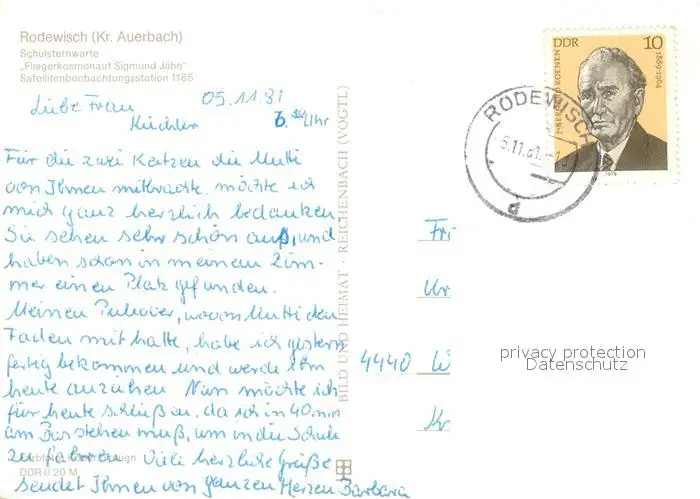 Rodewisch (Kr. Auerbach)
Schulsternwarte
„Fliegerkosmonaut Sigmund Jähn"
Satellitenbeobachtungsstation 1185
05.11.81
Liebe Frau
Küchler 6.30 Uhr
Für die zwei Katzen die Mutti
von Ihnen mitbrachte, möchte ich
mich ganz herzlich bedanken.
Sie sehen sehr schön aus, und
haben schon in meinem Zim-
mer einen Platz gefunden.
Meinen Pullover, wovon Mutti den
Faden mit hatte, habe ich gestern
fertig bekommen und werde ihn
heute anziehen. Nun möchte ich
für heute schließen, da ich in 40 min
am Bus stehen muß, um in die Schule
zu fahren. Viele herzliche Grüße
sendet Ihnen von ganzen Herzen Barbara
DDR 0,20 M
BILD UND HEIMAT · REICHENBACH (VOGTL)
DDR 10
BERNARD KOENEN 1889-1964
1979
RODEWISCH
5.11.81
Fr
Ur
4440 W
Kr
privacy protection
Datenschutz